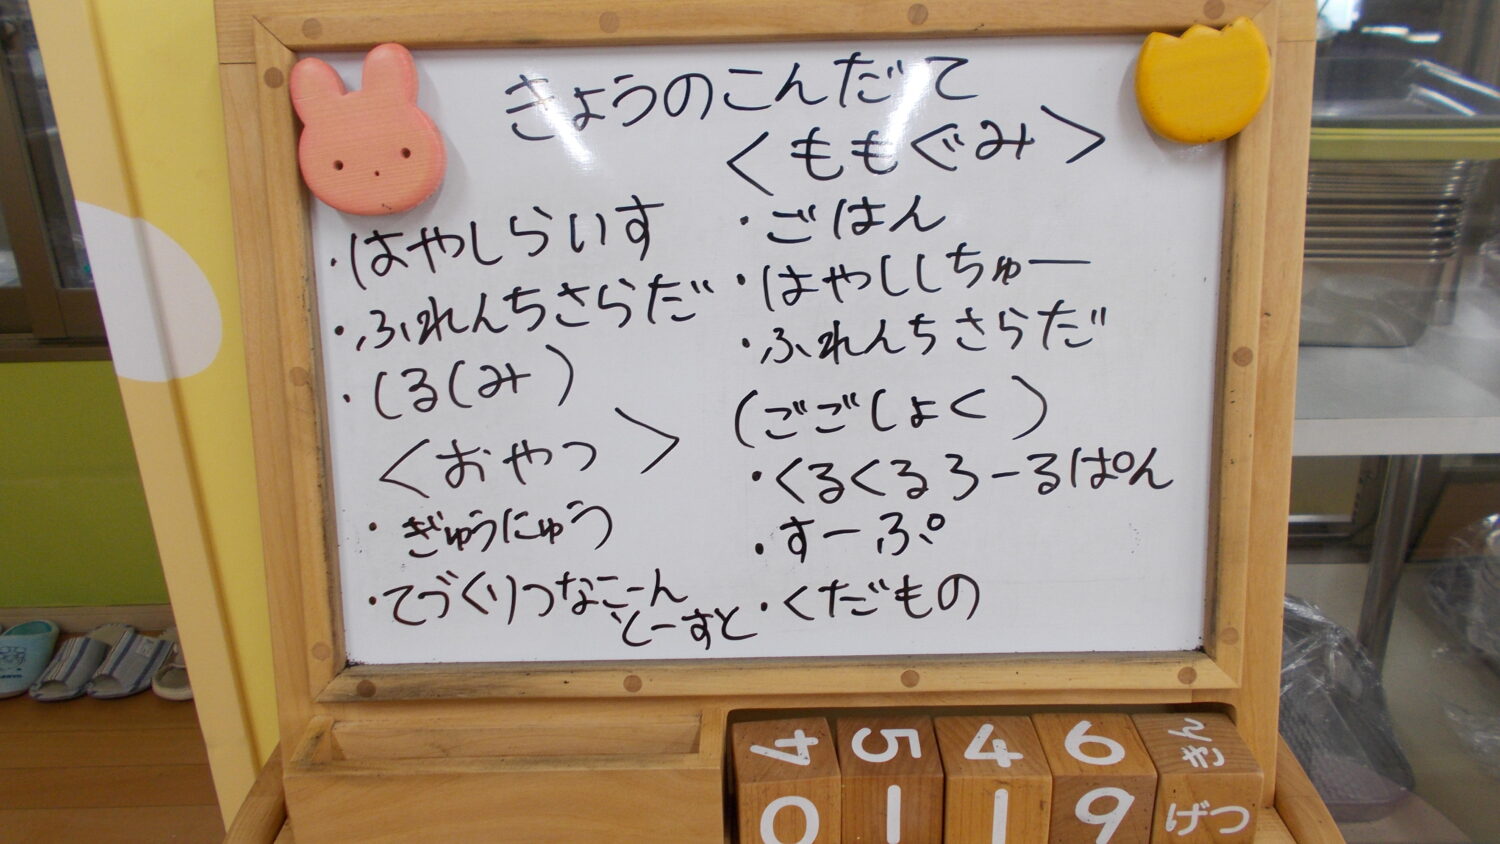 きょうのこんだて
・はやしらいす
・ふれんちさらだ
・しる(み)
<おやつ>
・ぎゅうにゅう
・てづくりつなこーん
とーすと
<ももぐみ>
・ごはん
・はやししちゅー
・ふれんちさらだ
(ごごしょく)
・くるくるろーるぱん
・すーぷ
・くだもの
4 5 4 6 きん
0 1 1 9 げつ